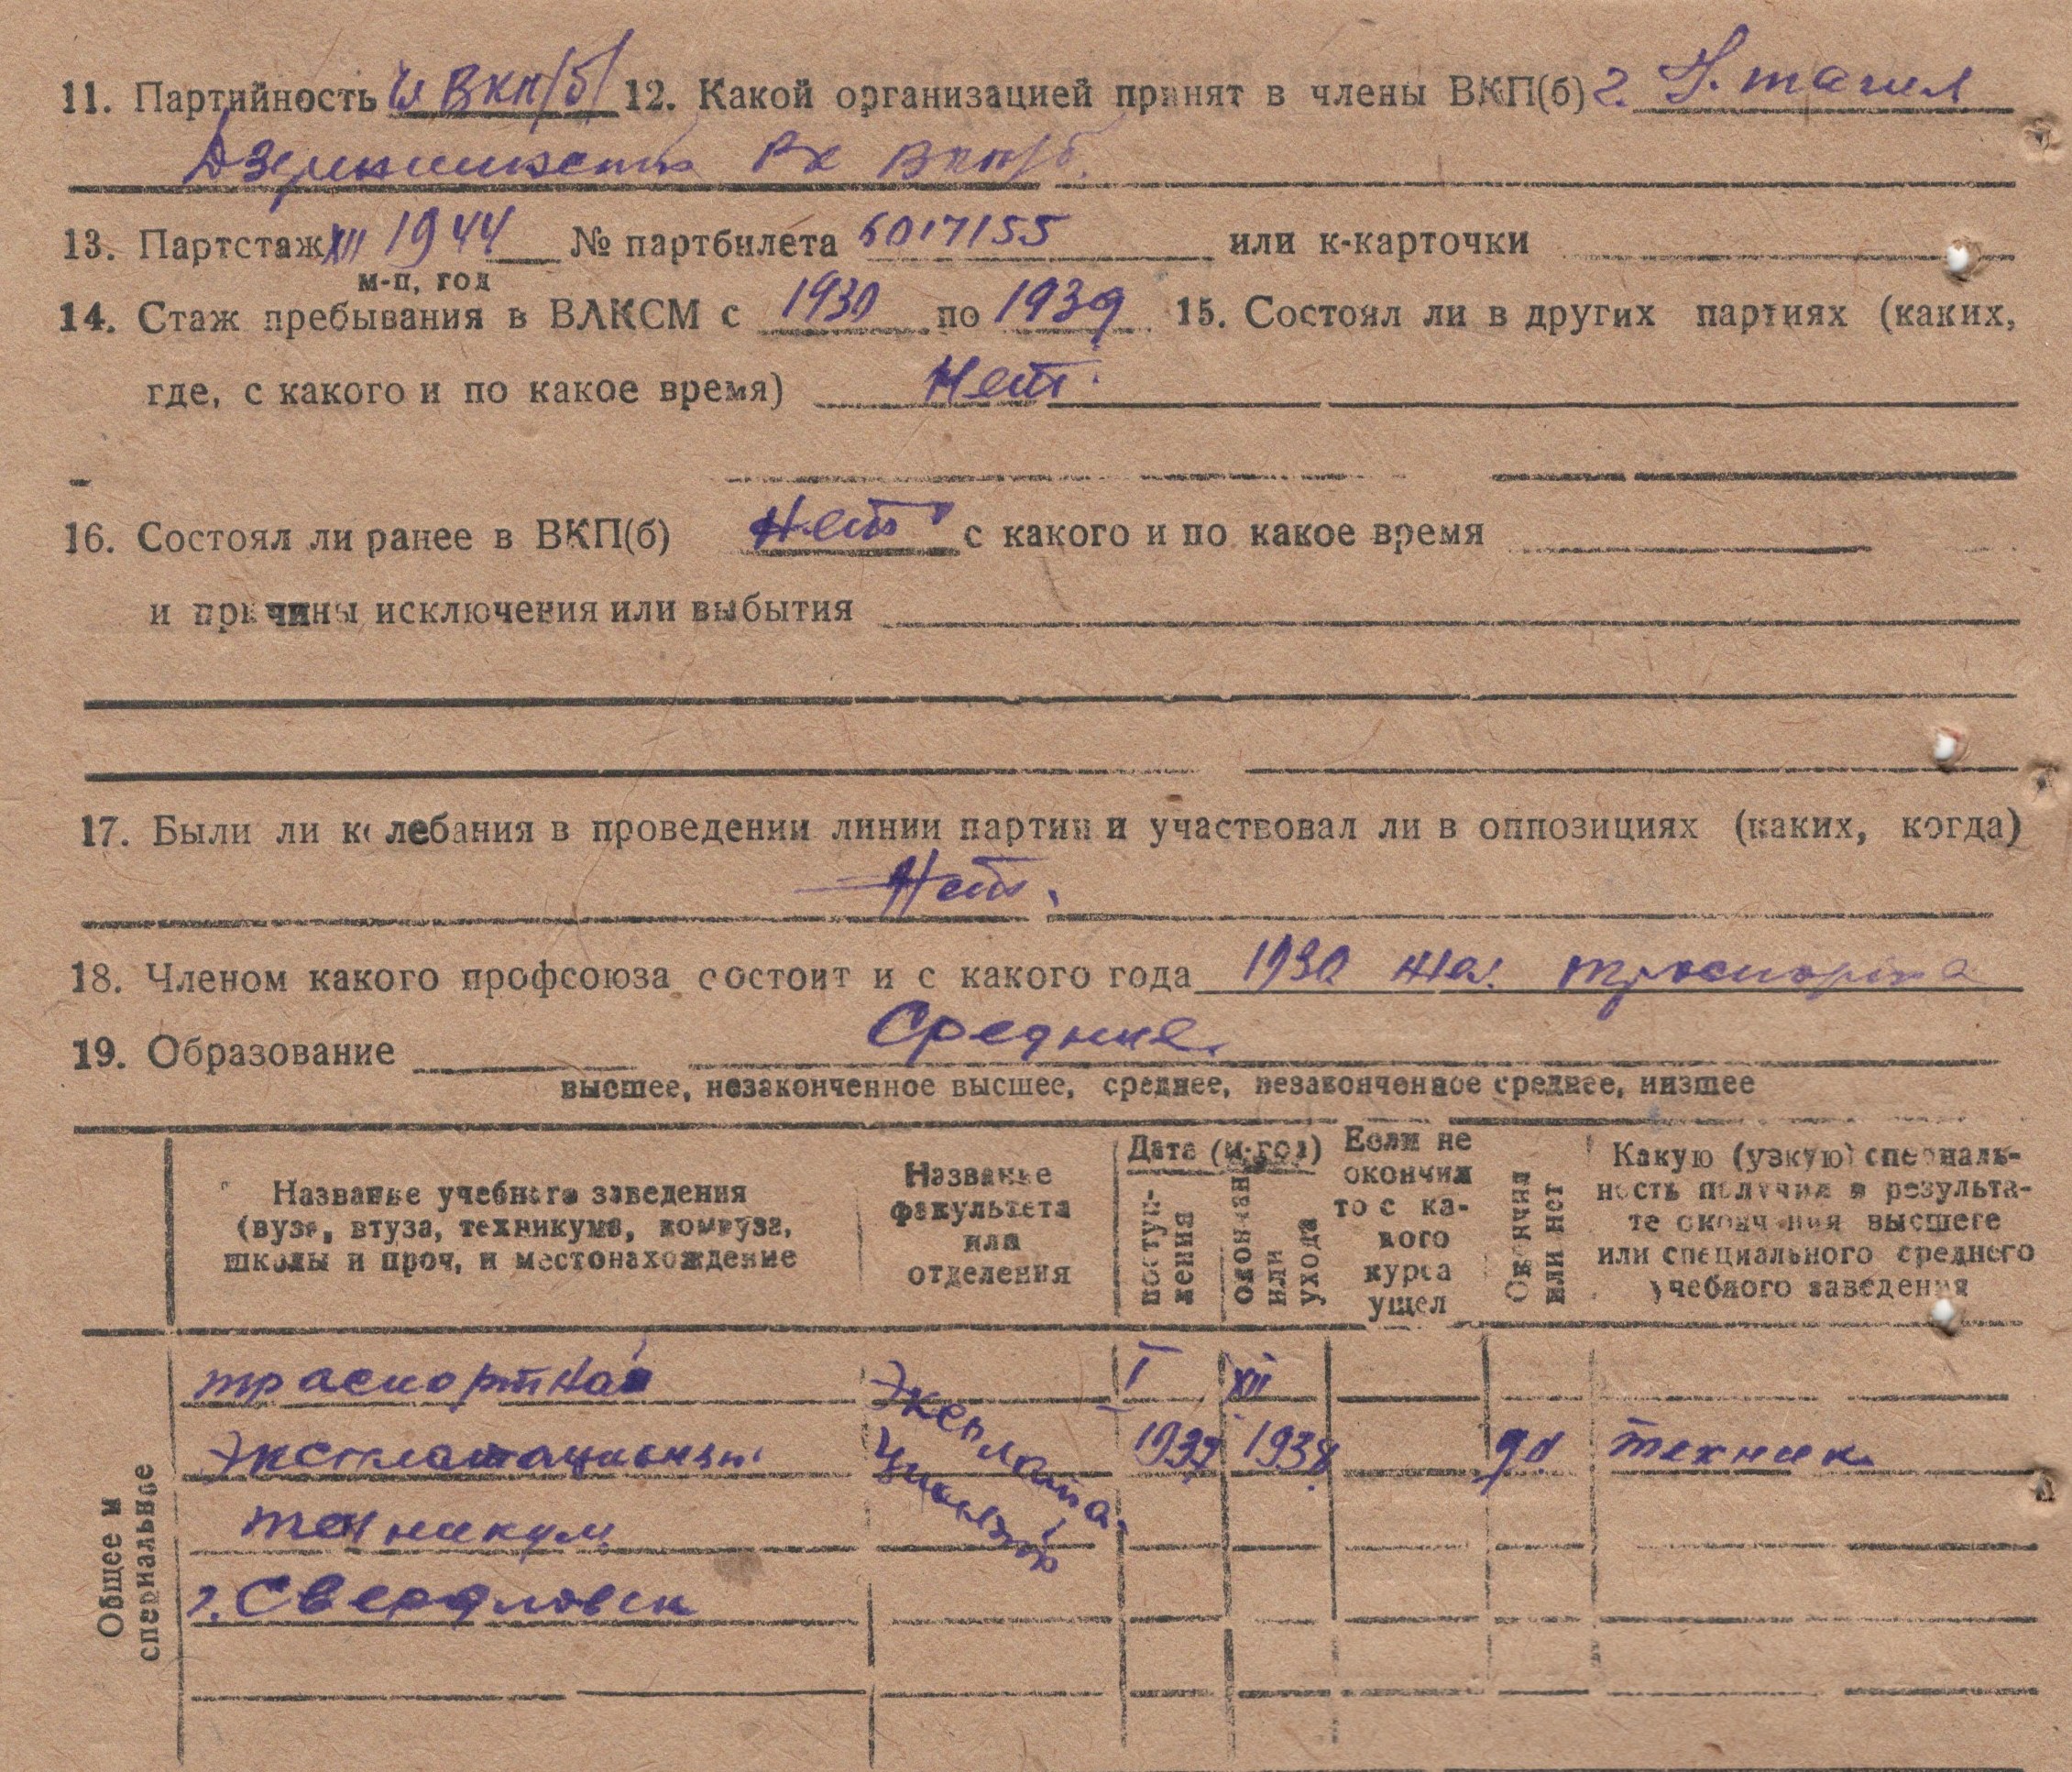 11. Партийность чл ВКП(б) 12. Какой организацией принят в члены ВКП(б) г. Н. тагил
Дзержинским РК ВКП(б.
13. Партстаж XII 1944 № партбилета 6017155 или к-карточки
м-ц, год
14. Стаж пребывания в ВЛКСМ с 1930 по 1939 15. Состоял ли в других партиях (каких,
где, с какого и по какое время) Нет.
16. Состоял ли ранее в ВКП(б) Нет с какого и по какое время
и причины исключения или выбытия
17. Были ли колебания в проведении линии партии и участвовал ли в оппозициях (каких, когда)
Нет.
18. Членом какого профсоюза состоит и с какого года 1930 жел. траспорта
19. Образование Средние.
высшее, незаконченное высшее, среднее, незаконченное среднее, низшее
Название учебного заведения
(вуза, втуза, техникума, комвуза,
школы и проч, и местонахождение
Название
факультета
или
отделения
Дата (м-год)
поступ-
ления
окончан
или
ухода
Если не
окончил
то с ка-
кого
курса
ушел
Окончил
или нет
Какую (узкую) специаль-
ность получил в результа-
те окончания высшего
или специального среднего
учебного заведения
Общее и
специальное
траспортная Эксплата. I XII
1937 1938 да техник
техникум
г. Свердловск